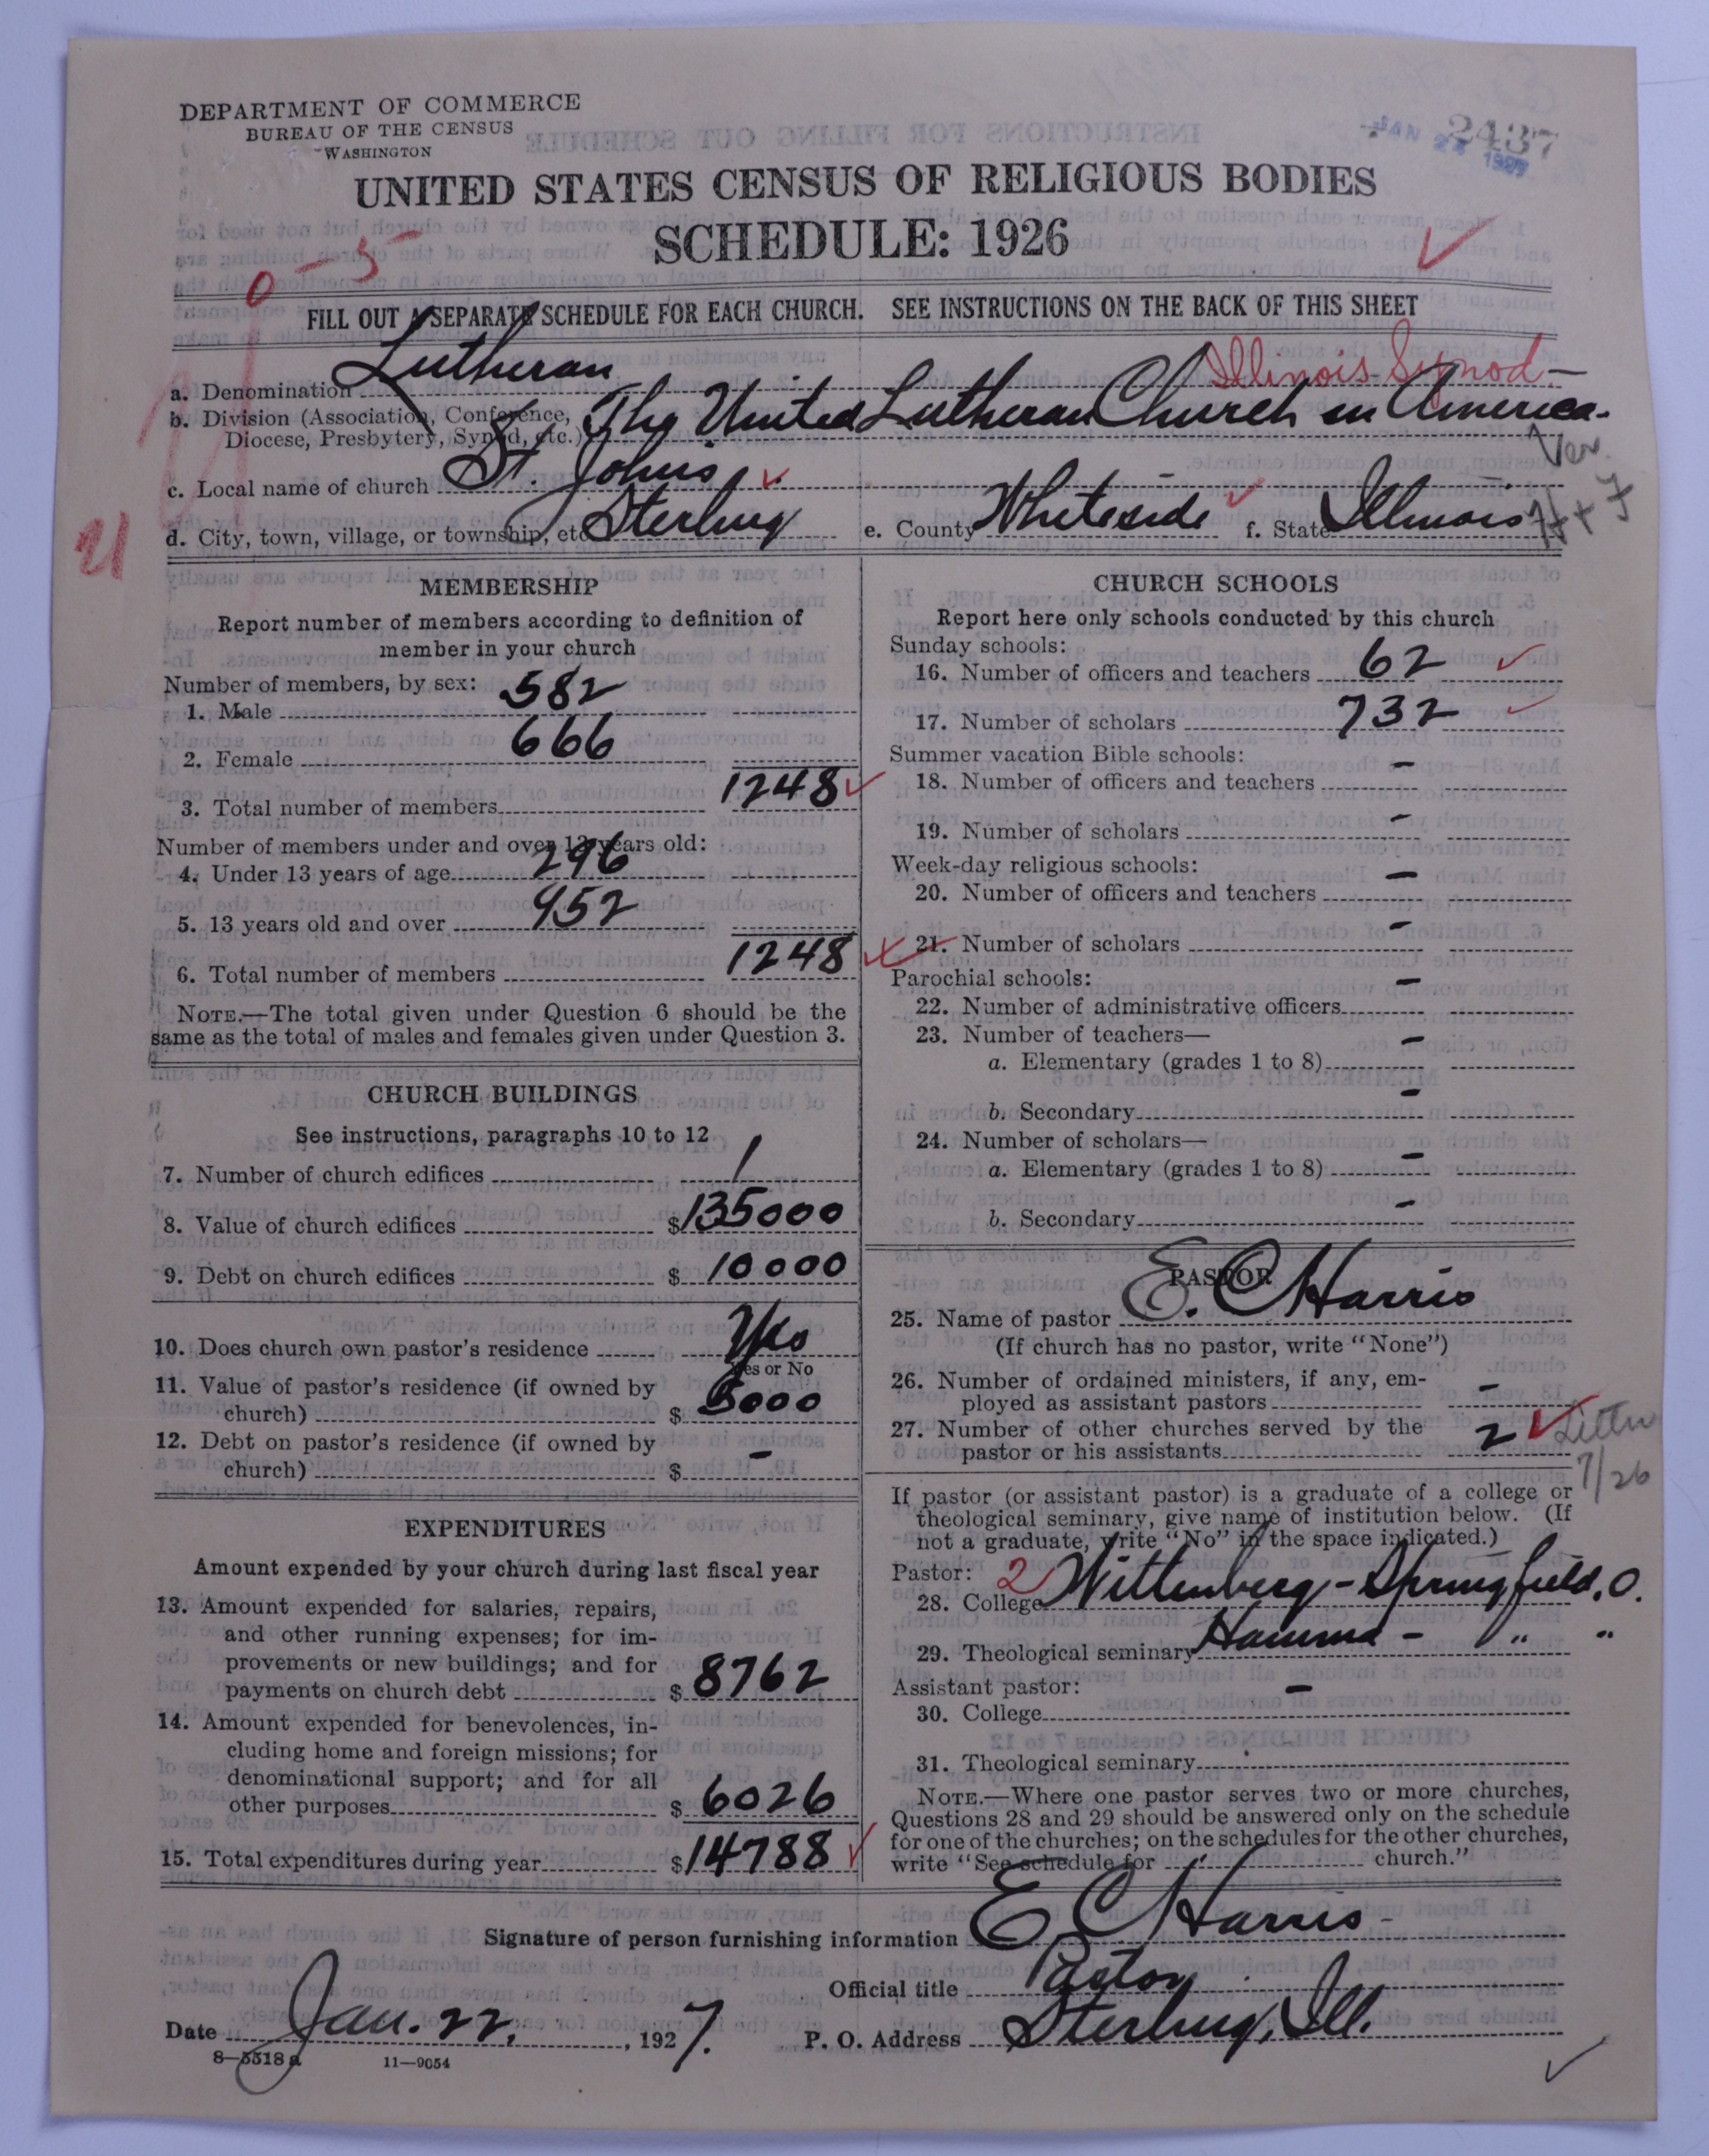 DEPARTMENT OF COMMERCE
BUREAU OF THE CENSUS
WASHINGTON
2437
JAN 24 1927
UNITED STATES CENSUS OF RELIGIOUS BODIES
SCHEDULE: 1926
0-5
FILL OUT A SEPARATE SCHEDULE FOR EACH CHURCH. SEE INSTRUCTIONS ON THE BACK OF THIS SHEET
a. Denomination Lutheran Illinois Synod-
b. Division (Association, Conference, Diocese, Presbytery, Synod, etc.) The United Lutheran Church in America.
Ver.
c. Local name of church St. Johns
H + F
d. City, town, village, or township, etc. Sterling e. County Whiteside f. State Illinois
MEMBERSHIP
Report number of members according to definition of
member in your church
Number of members, by sex:
1. Male 582
2. Female 666
3. Total number of members 1248
Number of members under and over 13 years old:
4. Under 13 years of age 296
5. 13 years old and over 952
6. Total number of members 1248
NOTE.—The total given under Question 6 should be the
same as the total of males and females given under Question 3.
CHURCH BUILDINGS
See instructions, paragraphs 10 to 12
7. Number of church edifices 1
8. Value of church edifices $135000
9. Debt on church edifices $ 10000
10. Does church own pastor's residence Yes
Yes or No
11. Value of pastor's residence (if owned by
church) $ 5000
12. Debt on pastor's residence (if owned by
church) $ -
EXPENDITURES
Amount expended by your church during last fiscal year
13. Amount expended for salaries, repairs,
and other running expenses; for im-
provements or new buildings; and for
payments on church debt $ 8762
14. Amount expended for benevolences, in-
cluding home and foreign missions; for
denominational support; and for all
other purposes $ 6026
15. Total expenditures during year $14788
CHURCH SCHOOLS
Report here only schools conducted by this church
Sunday schools:
16. Number of officers and teachers 62
17. Number of scholars 732
Summer vacation Bible schools:
18. Number of officers and teachers -
19. Number of scholars -
Week-day religious schools:
20. Number of officers and teachers -
21. Number of scholars -
Parochial schools:
22. Number of administrative officers -
23. Number of teachers—
a. Elementary (grades 1 to 8) -
b. Secondary -
24. Number of scholars—
a. Elementary (grades 1 to 8) -
b. Secondary -
PASTOR
25. Name of pastor E. C Harris
(If church has no pastor, write "None")
26. Number of ordained ministers, if any, em-
ployed as assistant pastors -
27. Number of other churches served by the
pastor or his assistants 2 Letter
7/26
If pastor (or assistant pastor) is a graduate of a college or
theological seminary, give name of institution below. (If
not a graduate, write "No" in the space indicated.)
Pastor: 2
28. College Wittenberg - Springfield, O.
29. Theological seminary Hamma - " "
Assistant pastor:
30. College -
31. Theological seminary
NOTE.—Where one pastor serves two or more churches,
Questions 28 and 29 should be answered only on the schedule
for one of the churches; on the schedules for the other churches,
write "See schedule for church."
Signature of person furnishing information E C Harris-
Official title Pastor
Date Jan. 22, 1927. P. O. Address Sterling, Ill.
8-5518 a 11-9054